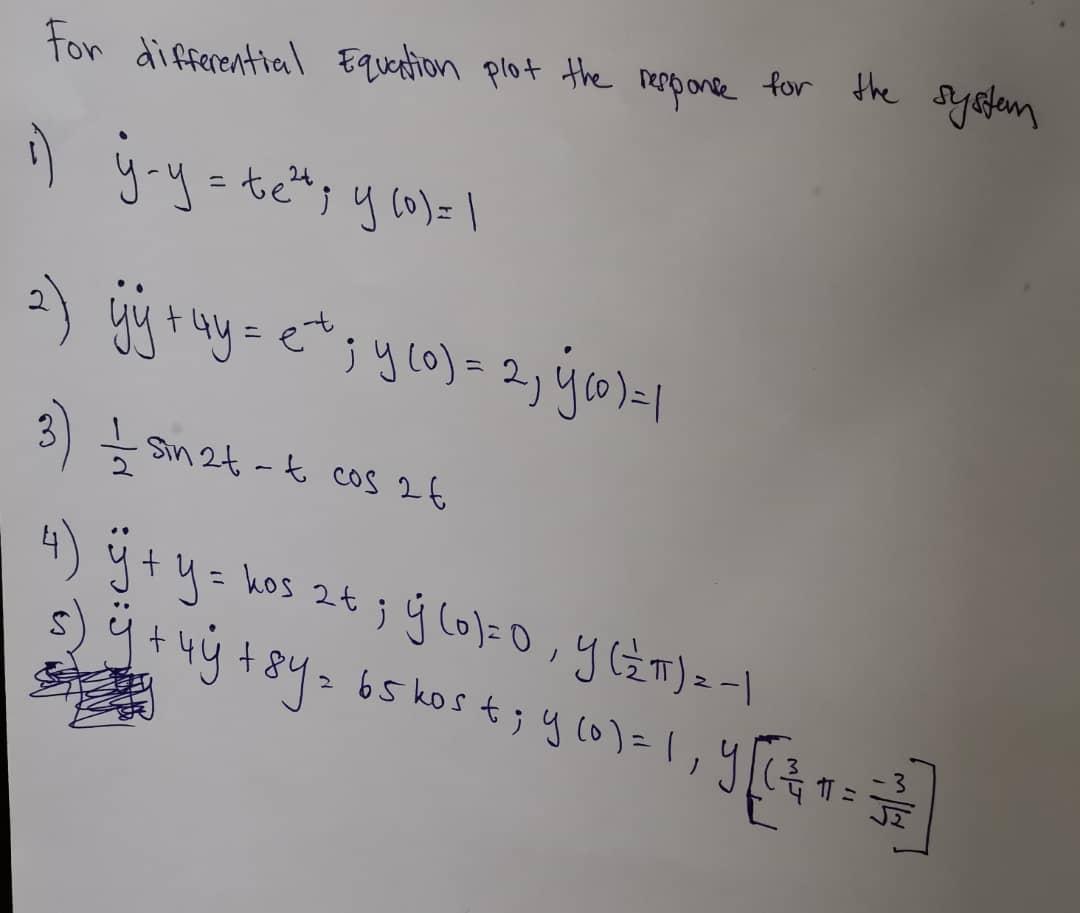 For differential Equation plot the response for the system
1) ẏ-y = te²ᵗ; y(0)=1
2) ÿẏ + 4y = e⁻ᵗ; y(0) = 2, ẏ(0)=1
3) 1/2 sin 2t - t cos 2t
4) ÿ + y = kos 2t; ẏ(0)=0, y(1/2 π)=-1
5) ÿ + 4ẏ + 8y = 65 kos t; y(0)=1, y[(3/4 π = -3/√2]